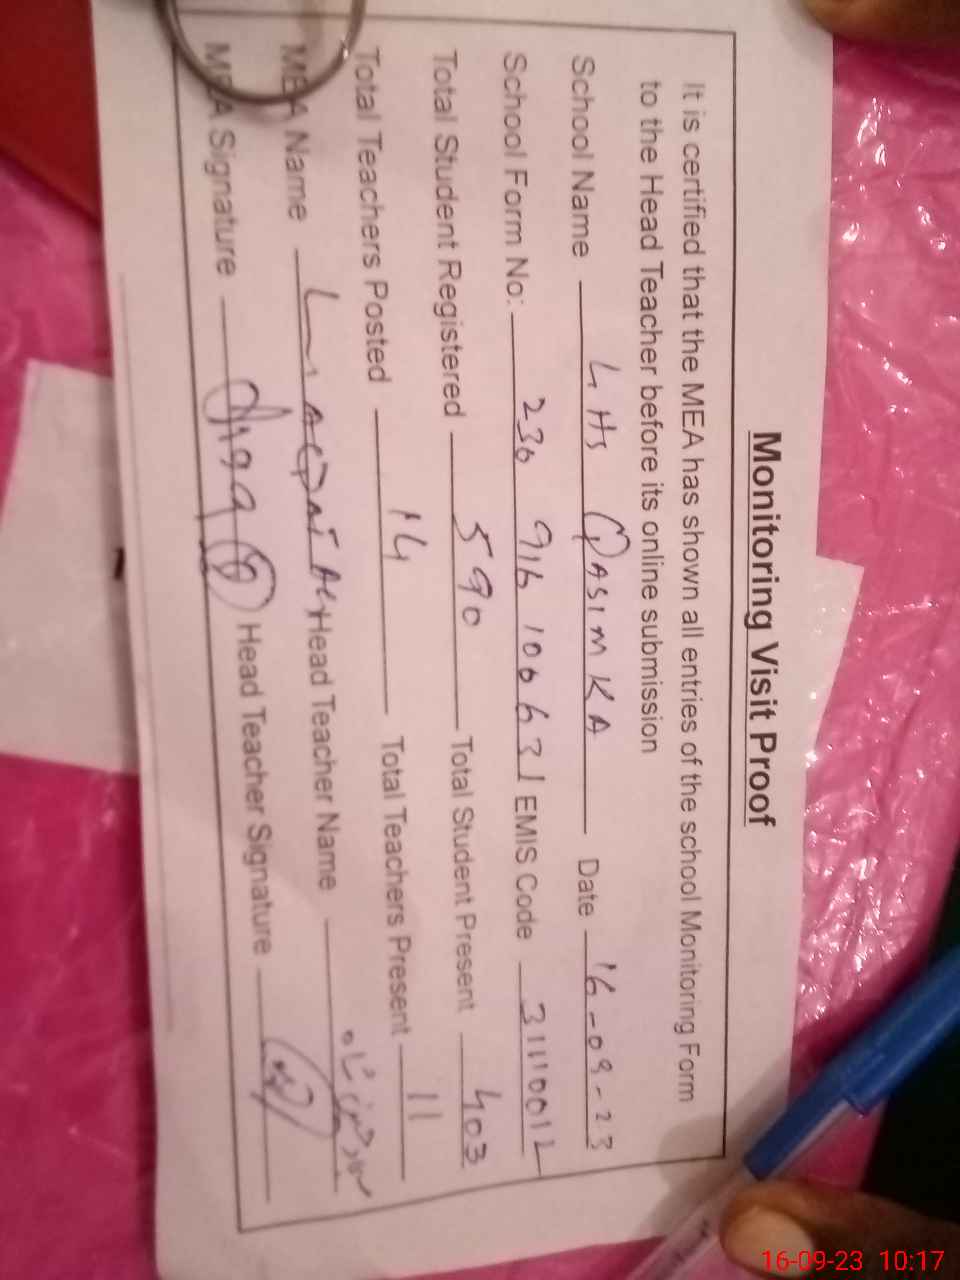 Monitoring Visit Proof
It is certified that the MEA has shown all entries of the school Monitoring Form
to the Head Teacher before its online submission
School Name GHS QASIM KA Date 16-09-23
School Form No: 230 916 100631 EMIS Code 31110012
Total Student Registered 590 Total Student Present 403
Total Teachers Posted 14 Total Teachers Present 11
MEA Name Head Teacher Name
MEA Signature Head Teacher Signature
16-09-23 10:17